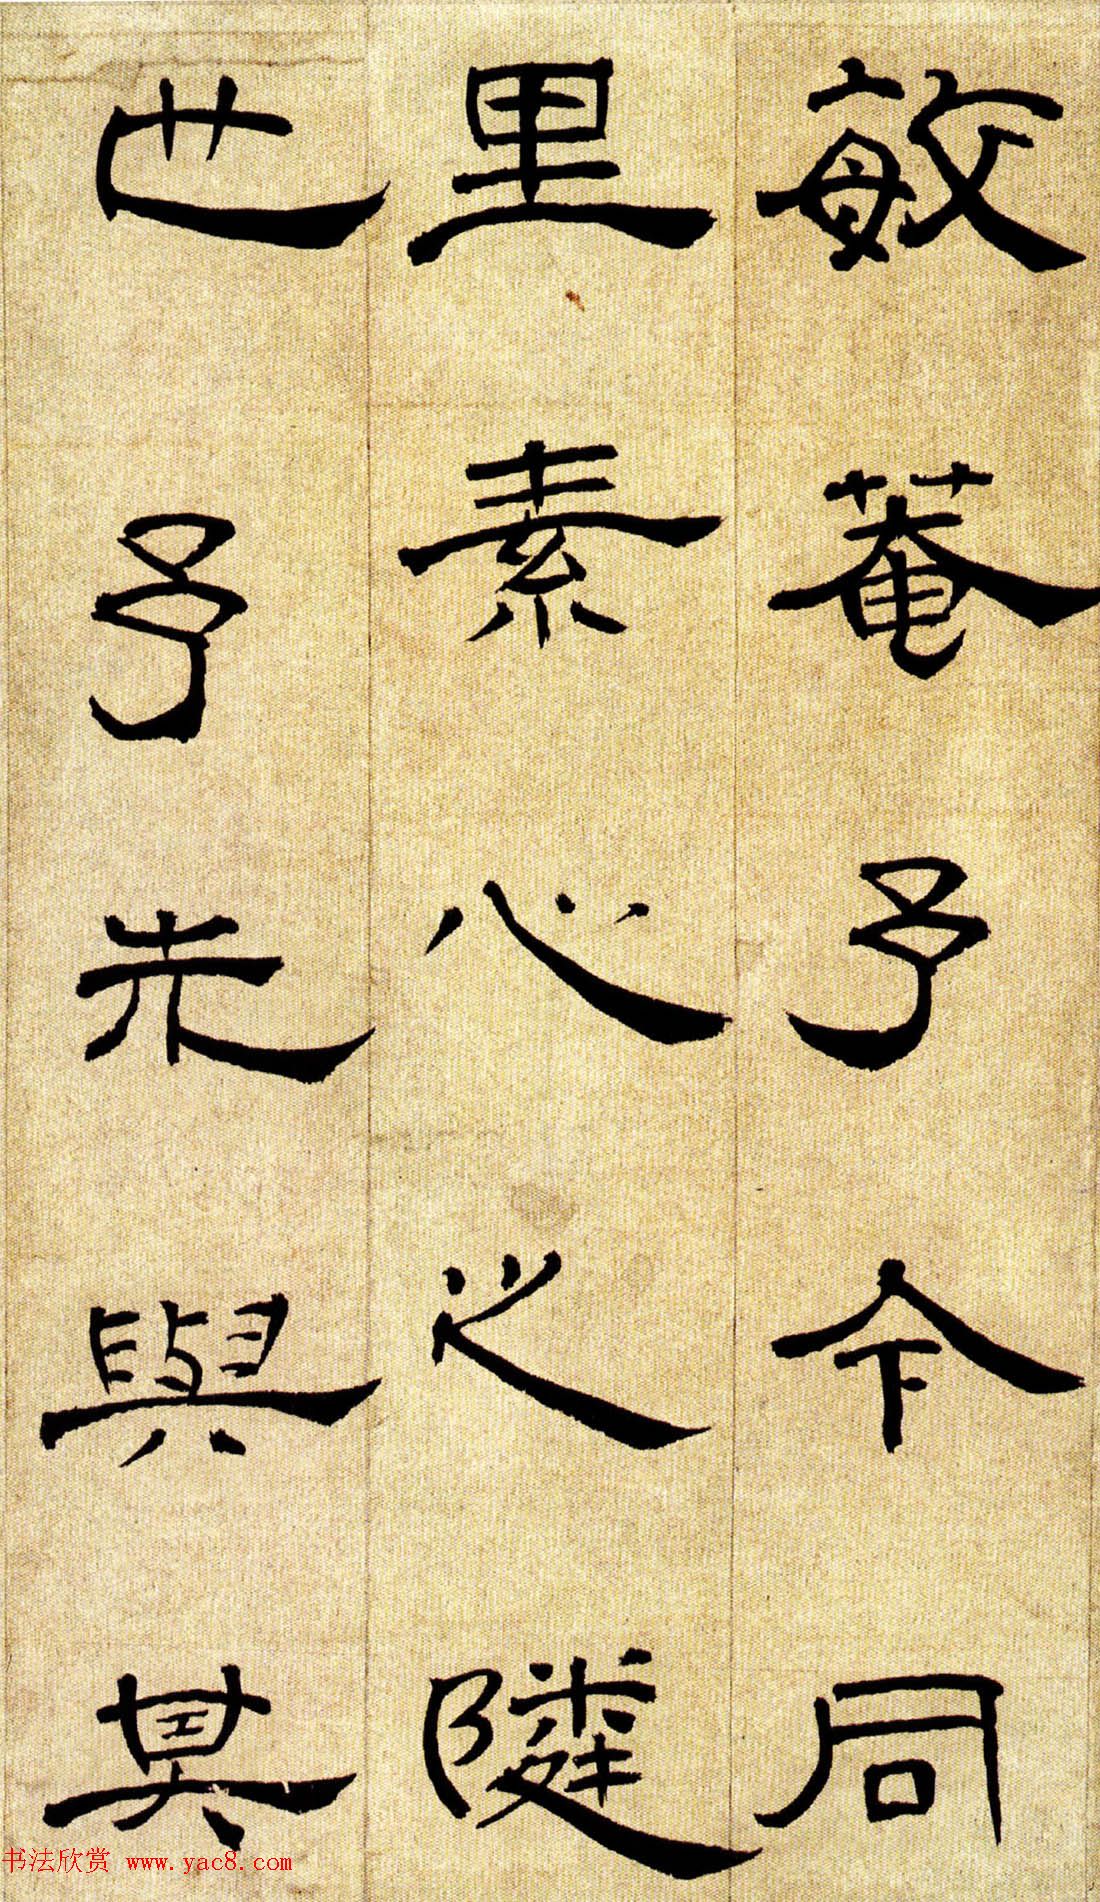 敏菴予今同
里素心之隣
也予先與其
书法欣赏 www.yac8.com